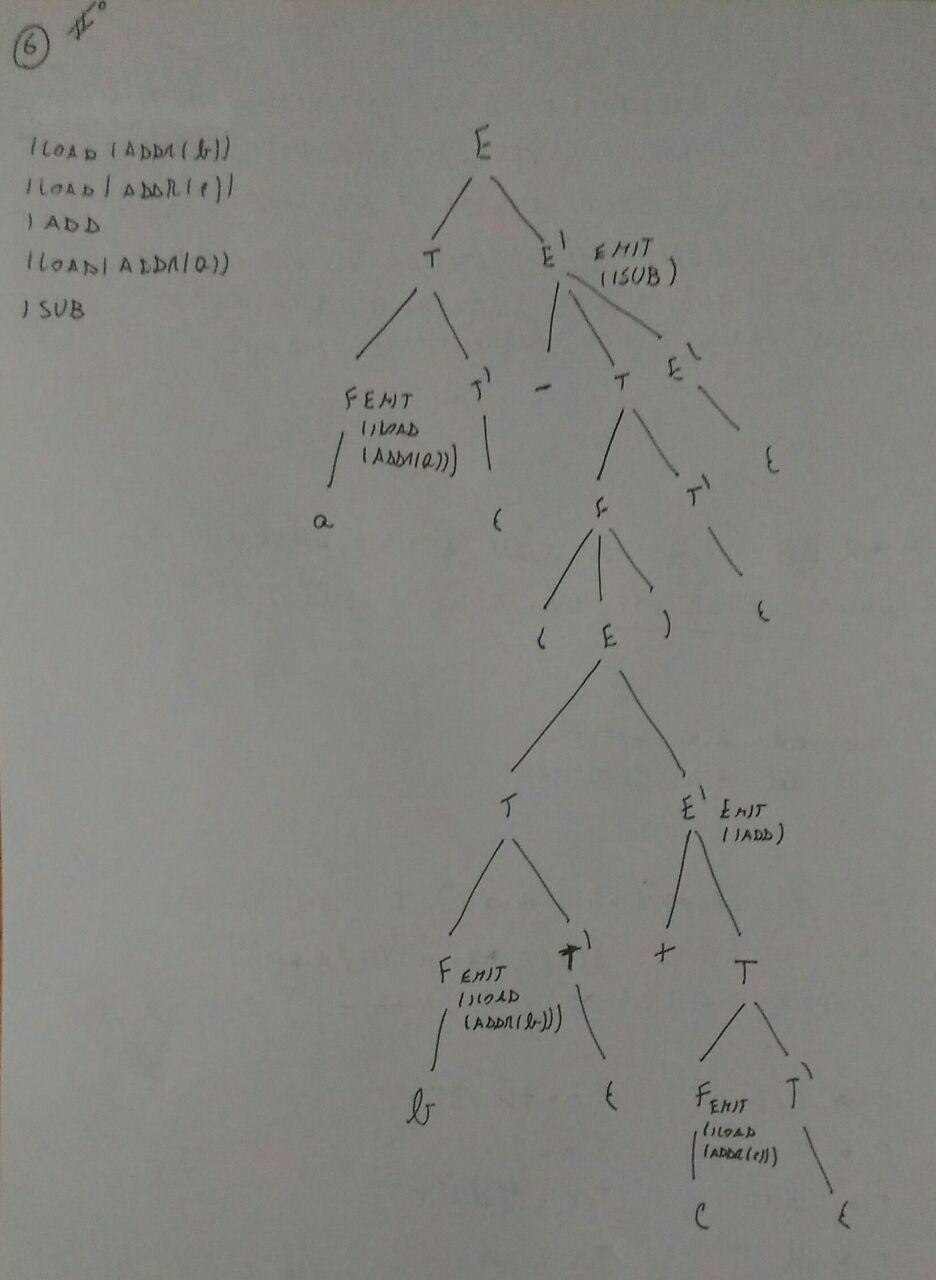 6
ILOAD (ADDR(b))
ILOAD(ADDR(c))
IADD
ILOAD(ADDR(a))
ISUB
E
T E' EMIT
(ISUB)
F EMIT T' - T E'
(ILOAD
(ADDR(a)))
ε
a ε F T'
( E ) ε
T E' EMIT
(IADD)
F EMIT T' + T
(ILOAD
(ADDR(b)))
b ε F EMIT T'
(ILOAD
(ADDR(c)))
c ε